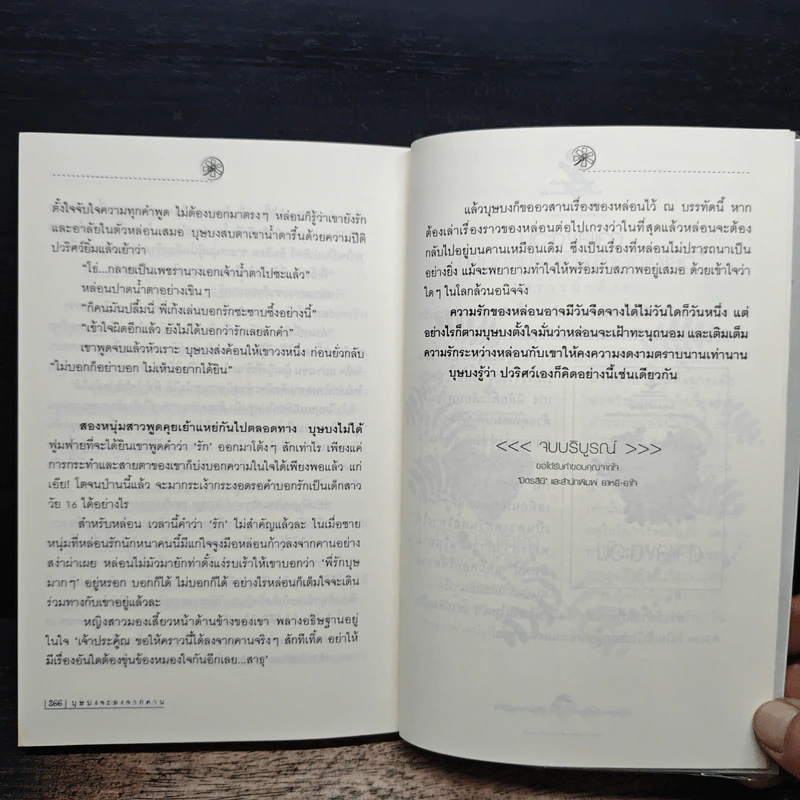 ตั้งใจจับใจความทุกคำพูด ไม่ต้องบอกมาตรงๆ หล่อนก็รู้ว่าเขายังรัก
และอาลัยในตัวหล่อนเสมอ บุษบงสบตาเขาน้ำตารื้นด้วยความปีติ
ปวริศว์ยิ้มแล้วเย้าว่า
“โธ่...กลายเป็นเพชรานางเอกเจ้าน้ำตาไปซะแล้ว”
หล่อนปาดน้ำตาอย่างเขินๆ
“ก็คนมันปลื้มนี่ พี่เก้งเล่นบอกรักซะซาบซึ้งอย่างนี้”
“เข้าใจผิดอีกแล้ว ยังไม่ได้บอกว่ารักเลยสักคำ”
เขาพูดจบแล้วหัวเราะ บุษบงส่งค้อนให้เขาวงหนึ่ง ก่อนยั่วกลับ
“ไม่บอกก็อย่าบอก ไม่เห็นอยากได้ยิน”
สองหนุ่มสาวพูดคุยเย้าแหย่กันไปตลอดทาง บุษบงไม่ได้
ฟูมฟายที่จะได้ยินเขาพูดคำว่า ‘รัก’ ออกมาโต้งๆ สักเท่าไร เพียงแค่
การกระทำและสายตาของเขาก็บ่งบอกความในใจได้เพียงพอแล้ว แก่
เอ๊ย! โตจนป่านนี้แล้ว จะมากระเง้ากระงอดรอคำบอกรักเป็นเด็กสาว
วัย 16 ได้อย่างไร
สำหรับหล่อน เวลานี้คำว่า ‘รัก’ ไม่สำคัญแล้วละ ในเมื่อชาย
หนุ่มที่หล่อนรักนักหนาคนนี้มีแก่ใจจูงมือหล่อนก้าวลงจากคานอย่าง
สง่าผ่าเผย หล่อนไม่มัวมายักท่าตั้งแง่รบเร้าให้เขาบอกว่า ‘พี่รักบุษ
มากๆ’ อยู่หรอก บอกก็ได้ ไม่บอกก็ได้ อย่างไรหล่อนก็เต็มใจจะเดิน
ร่วมทางกับเขาอยู่แล้วละ
หญิงสาวมองเสี้ยวหน้าด้านข้างของเขา พลางอธิษฐานอยู่
ในใจ ‘เจ้าประคู้ณ ขอให้คราวนี้ได้ลงจากคานจริงๆ สักทีเทิ้ด อย่าให้
มีเรื่องอันใดต้องขุ่นข้องหมองใจกันอีกเลย...สาธุ’
366 | บุษบงจะลงจากคาน
แล้วบุษบงก็ขออวสานเรื่องของหล่อนไว้ ณ บรรทัดนี้ หาก
ต้องเล่าเรื่องราวของหล่อนต่อไปเกรงว่าในที่สุดแล้วหล่อนจะต้อง
กลับไปอยู่บนคานเหมือนเดิม ซึ่งเป็นเรื่องที่หล่อนไม่ปรารถนาเป็น
อย่างยิ่ง แม้จะพยายามทำใจให้พร้อมรับสภาพอยู่เสมอ ด้วยเข้าใจว่า
ใดๆ ในโลกล้วนอนิจจัง
ความรักของหล่อนอาจมีวันจืดจางได้ไม่วันใดก็วันหนึ่ง แต่
อย่างไรก็ตามบุษบงตั้งใจมั่นว่าหล่อนจะเฝ้าทะนุถนอม และเติมเต็ม
ความรักระหว่างหล่อนกับเขาให้คงความงดงามตราบนานเท่านาน
บุษบงรู้ว่า ปวริศว์เองก็คิดอย่างนี้เช่นเดียวกัน
<<< จบบริบูรณ์ >>>
ขอได้รับคำขอบคุณจากใจ
‘มิตรสินี’ และสำนักพิมพ์ ยาหยี-ยาใจ